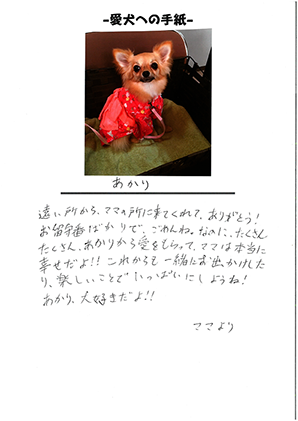 -愛犬への手紙-
あかり
遠い所から、ママの所に来てくれて、ありがとう!
お留守番ばかりで、ごめんね。なのに、たくさん
たくさん、あかりから愛をもらって、ママは本当に
幸せだよ!!これからも一緒にお出かけした
り、楽しいことでいっぱいにしようね!
あかり、大好きだよ!!
ママより